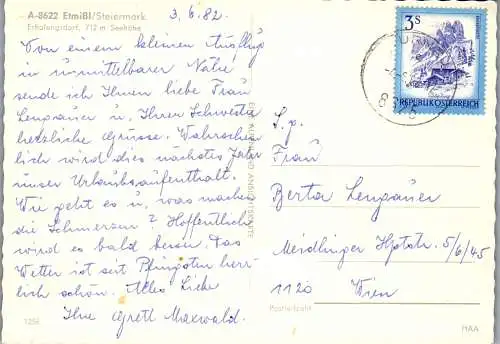 A-8622 Etmißl/Steiermark
Erholungsdorf, 712 m Seehöhe
3.6.82
Von einem kleinen Ausflug
in unmittelbarer Nähe
sende ich Ihnen liebe Frau
Lengauer u. Ihrer Schwester
herzliche Grüsse. Wahrschein
lich wird dies nächstes Jahr
unser Urlaubsaufenthalt.
Wie geht es u. was machen
die Schmerzen? Hoffentlich
wird es bald besser. Das
Wetter ist seit Pfingsten herr-
lich schön. Alles Liebe
Ihre Greth Maxwald.
1256
3S
REPUBLIK ÖSTERREICH
S.p.
Frau
Berta Lengauer
Meidlinger Hptstr. 5/6/45
1120 Wien
Postleitzahl
HAA